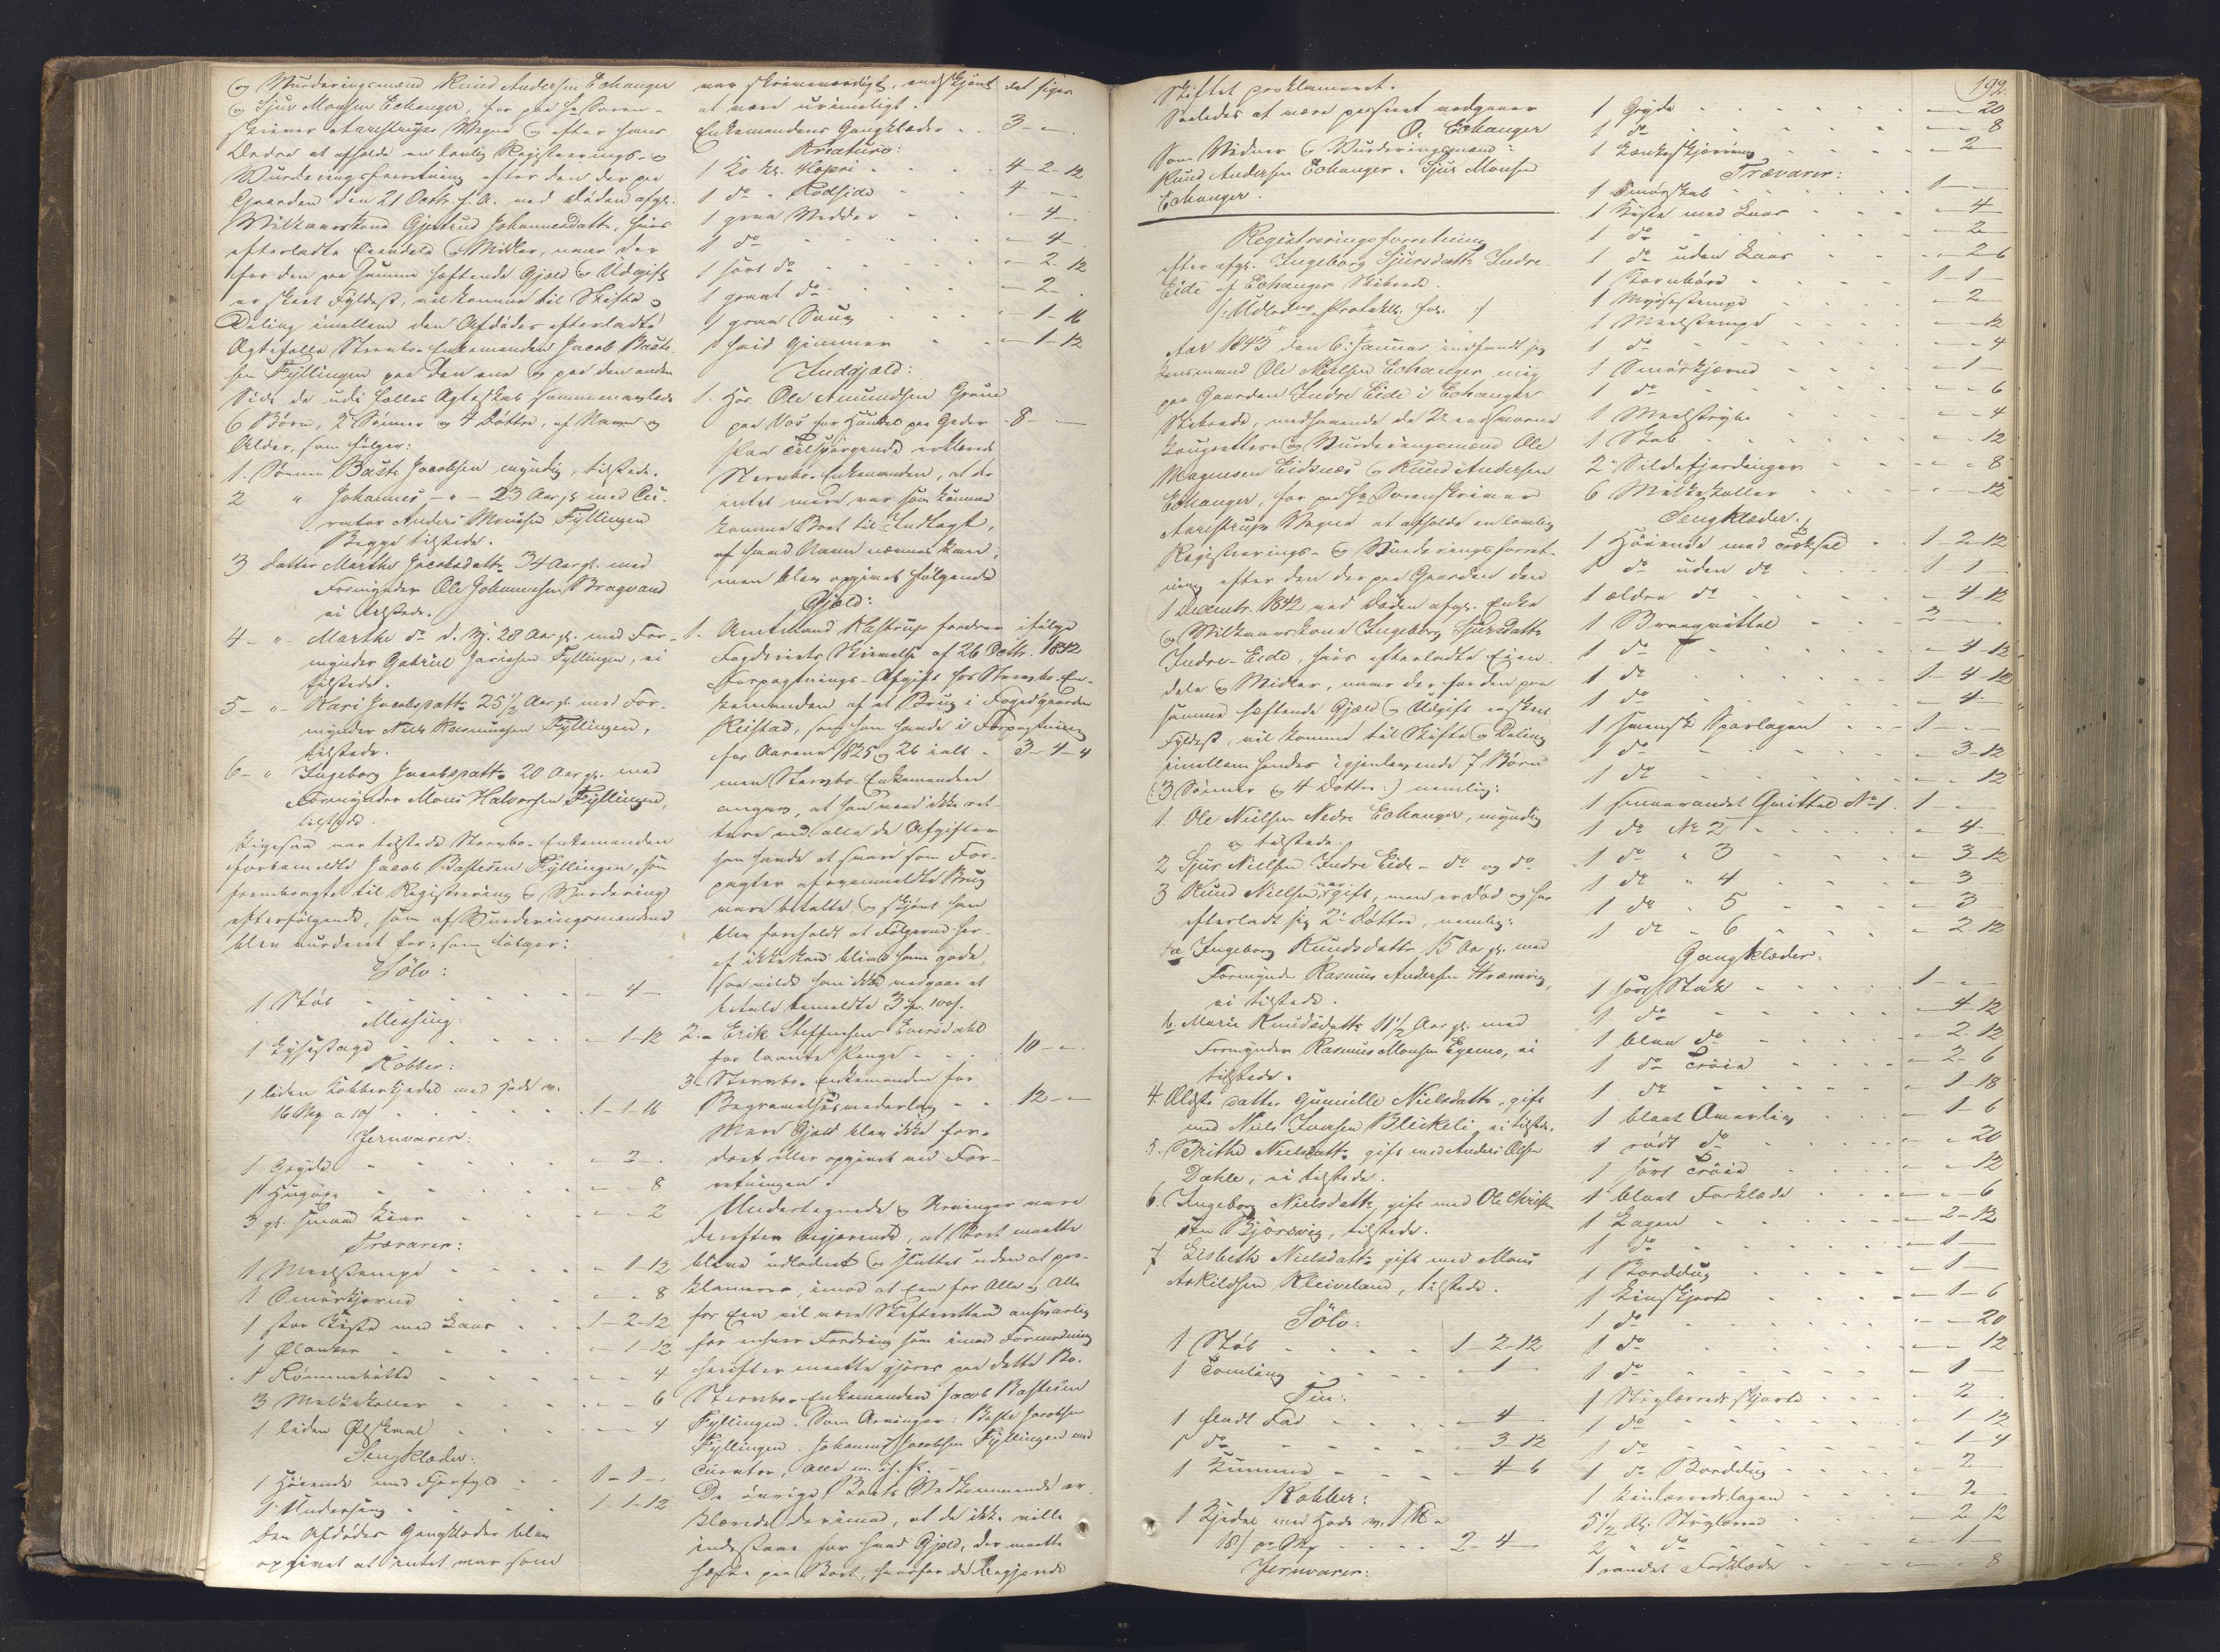 og Vurderingsmænd Knud Andersen Echanger
og Sjur Monsen Echanger, for paa Hr. Soren-
skriver Aarestrups Vegne og efter hans
Ordre at afholde en lovlig Registrerings- og
Vurderingsforretning efter den der paa
Gaarden den 21 Octbr. f. A. ved Døden afgl.
Vilkaarskone Gjertrud Johannesdattr, hvis
efterladte Eiendele og Midler, naar der
for den paa samme heftende Gjæld og Udgift
er skeet Fyldest, vil komme til Skifte og
Deling imellem den Afdødes efterladte
Ægtefælle Stervbo-Enkemanden Jacob Baste-
sen Fyllingen paa den ene og paa den anden
Side de udi fælles Ægteskab sammenavlede
6 Børn, 2 Sønner og 4 Døttre, af Navne og
Alder, som følger:
1. Sønnen Baste Jacobsen myndig, tilstede.
2 " Johannes - " - 23 Aar gl. med Cu-
rator Anders Monsen Fyllingen
Begge tilstede.
3 Datter Marthe Jacobsdattr. 34 Aar gl. med
Formynder Ole Johannesen Bragvand
ei tilstede.
4 - " - Marthe do d. y. 28 Aar gl. med For-
mynder Gabriel Fyllingen, ei
tilstede.
5 - " - Kari Jacobsdattr 25 1/2 Aar gl. med For-
mynder Niels Rasmussen Fyllingen,
tilstede.
6 - " Ingeborg Jacobsdattr. 20 Aar gl. med
Formynder Mons Halvorsen Fyllingen,
tilstede.
Ligesaa var tilstede Stervbo-Enkemanden
forbemeldte Jacob Bastesen Fyllingen, som
frembragte til Registrering og Vurdering
efterfølgende, som af Vurderingsmændene
blev vurderet for, som følger:
Sölv:
1 Støb - 4 -
Messing:
1 Lysestage - 1 - 12
Kobber:
1 liden Kobberkjedel med
16 Mrk a 10 s 1 - 1 - 16
Jernvarer:
1 Gryde - 2 -
1 Hugøxe - - 8
3 gl. smaa Ljaar - - 2
Trævarer:
1 Meelstampe - 1 - 12
1 Smörkjerne - - 8
1 stor Kiste med Laas 1 - 2 - 12
1 Ølanker - 1 - 12
1 Rømmebøtte - - 4
3 Melkekoller - - 6
1 liden Ølskaal - - 4
Sengklæder:
1 Høiende med Fjærfyld 1 - 1 -
1 Underseng 1 - 1 - 12
Den Afdødes Gangklæder blev
opgivet at intet var som
var skriveværdigt, endskjønt det siges
at være urimeligt.
Enkemandens Gangklæder 3 - -
Kreaturo:
1 Ko kr. Hopri 4 - 2 - 12
1 do " Rödside 4 - -
1 graa Vedder - 4 -
1 do - 4 -
1 sort do - 2 - 12
1 graat do - 2 -
1 graa Souv - 1 - 16
1 hvid Gimmer - 1 - 12
Indgjæld:
1. Hos Ole Amundsen Grove
paa Vos for Handel paa Geder 8 - -
Paa Tilspørgende erklærede
Stervbo-Enkemanden, at der
intet mere var som kunde
komme Boet til Indtægt,
af hvad Navn nævnes kan,
men blev opgivet følgende
Gjæld:
1. Amtmand Hastrup fordrer ifølge
Fogderiets Skrivelse af 26 Octbr. 1842
Forpagtnings-Afgift hos Stervbo-En-
kemanden af et Brug i Fogedgaarden
Reistad, som han havde i Forpagtning
for Aarene 1825 og 26 ialt 3 - 4 - 4
men Stervbo-Enkemanden
angav, at han veed ikke ret-
tere end alle de Afgifter
han havde at svare som For-
pagter af ovenmeldte Brug
vare betalte, og skjønt han
blev foreholdt at Følgerne her-
af ikke kan blive ham gode,
saa vilde han ikke vedgaae at
betale bemeldte 3 Sp. 100 s.
2. - Erik Steffensen Eversdahl
for laante Penge 10 - -
3. Stervbo-Enkemanden for
Begravelsesvederlag 12 - -
Mere Gjæld blev ikke for-
dret eller opgivet ved For-
retningen.
Undertegnede og Arvinger vare
derefter begjærende, at Boet maatte
blive udloddet og sluttet uden at pro-
klamere, imod at Een for Alle og Alle
for Een vil være Skifteretten ansvarlig
for enhver Fordring som imod Formodning
herefter maatte gjøres paa dette Bo.
Stervbo-Enkemanden Jacob Bastesen
Fyllingen. Som Arvinger: Baste Jacobsen
Fyllingen. Johannes Jacobsen Fyllingen med
Curator, Alle m. i. P. -
De øvrige Boets Vedkommende er-
klærede derimod, at de ikke ville
indestaae for hvad Gjæld, der maatte
hæfte paa Boet, hvorfor de begjærede
192.
Skiftet proklameret.
Saaledes at være passeret vedgaaer
O. Echanger
Som Vidner og Vurderingsmænd:
Knud Andersen Echanger. Sjur Monsen
Echanger.
Registreringsforretning
efter afgl. Ingeborg Sjursdattr Indre
Eide af Echanger Skibrede.
/: Udlodnings Protokll. fol. :/
Aar 1843 den 6 Januar indfandt jeg
Lensmand Ole Nielsen Echanger mig
paa Gaarden Indre Eide i Echanger
Skibrede, medhavende de 2de eedsvorne
Laugrettes og Vurderingsmænd Ole
Magnesen Eidsnæs og Knud Andersen
Echanger, for paa Hr Sorenskriver
Aarestrups Vegne at afholde en lovlig
Registrerings- og Vurderingsforret-
ning efter den der paa Gaarden den
1 Decembr. 1842 ved Døden afgl. Enke
og Vilkaarskone Ingeborg Sjursdattr
Indre-Eide, hvis efterladte Eien-
dele og Midler, naar der for den paa
samme hæftende Gjæld og Udgift er skeet
Fyldest, vil komme til Skifte og Deling
imellem hendes igjenlevende 7 Børn
(: 3 Sønner og 4 Døttre :) nemlig:
1 Ole Nielsen Nedre Echanger, myndig
og tilstede.
2 Sjur Nielsen Indre Eide - do og do
3 Knud Nielsen, var gift, men er død og har
efterladt sig 2de Døttre, nemlig:
a Ingeborg Knudsdattr, 15 Aar gl. med
Formynder Rasmus Andersen
ei tilstede.
b. Marie Knudsdattr 11 1/2 Aar gl. med
Formynder Rasmus Monsen ei
tilstede.
4. Ældste Datter Gunnille Nielsdattr, gift
med Niels Iversen Blickeli, ei tilstede.
5. Brithe Nielsdattr. gift med Anders Olsen
Dahle, ei tilstede.
6. Ingeborg Nielsdattr, gift med Ole Christen-
sen Bjørsvig, tilstede.
7 Lisbeth Nielsdattr gift med Mons
Askildsen Kleiveland, tilstede.
Sölv:
1 Støb 1 - 2 - 12
1 Tomling - 1 -
Tin:
1 fladt Fad - 4 -
1 do - 3 - 12
1 Kumme - 4 - 6
Kobber:
1 Kjedel med
18 s pr Mrk 2 - 4 -
Jernvarer:
1 Gryde - - 20
1 do - - 8
1 Lænkeskjæring - 2
Trævarer:
1 Smørskab 1 - -
1 Kiste med Laas - 4
1 do - 2
1 do uden Laas - 2 - 6
1 Kornbøre 1 - 1 -
1 Myssestampe - 2
1 Meelstampe - - 12
1 do - - 4
1 Smörkjærne - 1 -
1 do - - 6
1 Meeltryte - - 4
1 Skab - - 12
2 Sildefjerdinger - - 8
6 Melkekoller - - 12
Sengklæder:
1 Höiende med 1 - 2 - 12
1 do uden do 1 - 1 -
1 ældre do - 4 - 12
1 Braaqvittel 2 -
1 do - 4 - 12
1 do 1 - 4 - 12
1 do - 4 -
1 svensk Sparlagen 1 - -
1 do - 3 - 12
1 do - - 12
1 smaarandet Qvittel No 1. 1 - -
1 do No 2 - 4 -
1 do " 3 - 3 - 12
1 do " 4 - 3
1 do " 5 - 3
1 do " 6 - 2 - 12
Gangklæder:
1 sort Stak 1 - -
1 do - 4 - 12
1 blaa do - 2 - 12
1 do Trøie - 2 - 6
1 do - 1 - 18
1 blaat - 1 - 6
1 rødt do - - 20
1 sort Trøie - - 12
1 blaat Forklæde - - 6
1 Lagen - 2 - 12
1 do - 1 -
1 Borddug - 1 -
1 Linskjorte - 1 - 6
1 do - - 20
1 do - - 12
1 do - 1 -
1 Strylærredsskjorte - 2
1 do - 1 - 12
1 do - 1 - 4
1 do Borddug - 2
1 Linlærredslagen - 2 -
5 1/2 Al. Strylærred - 2 - 12
2 " do - 1 -
1 randet Forklæde - - 8